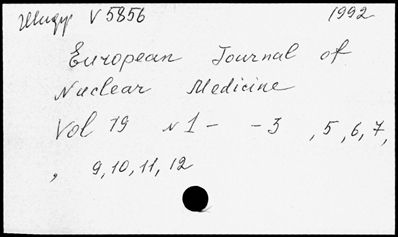 Шифр V 5856 1992
European Journal of
Nuclear Medicine
Vol 19 N 1 - - 3 , 5, 6, 7,
, 9, 10, 11, 12